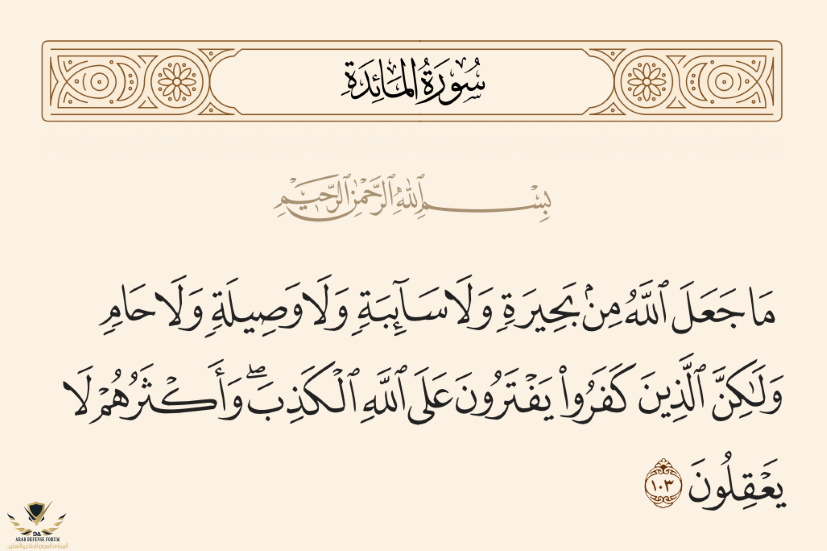 سُورَةُ المَائِدَة
بِسْمِ ٱللَّهِ ٱلرَّحْمَٰنِ ٱلرَّحِيمِ
مَا جَعَلَ ٱللَّهُ مِنۢ بَحِيرَةٖ وَلَا سَآئِبَةٖ وَلَا وَصِيلَةٖ وَلَا حَامٖ
وَلَٰكِنَّ ٱلَّذِينَ كَفَرُواْ يَفۡتَرُونَ عَلَى ٱللَّهِ ٱلۡكَذِبَۖ وَأَكۡثَرُهُمۡ لَا
يَعۡقِلُونَ ١٠٣
DA
ARAB DEFENSE FORUM